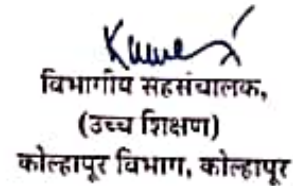 विभागीय सहसंचालक,
(उच्च शिक्षण)
कोल्हापूर विभाग, कोल्हापूर